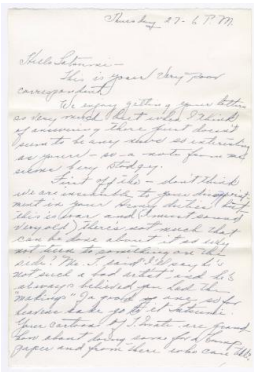 Thursday 27 - 6 P.M.
Hello Saburo -
This is your very poor
correspondent!
We enjoy getting your letters
so very much but when I think
of answering them first doesn't
seem to be any news as interesting
as yours - so a note from me
seems very stodgy.
First of all - don't think
we are insensible to your disappoint
ment in your Army duties! but
this is war and (I must sound
very old) there's not much that
can be done about it so why
not turn to something on the
side? You said Llso
not such a bad artist and he's
always believed you had the
making of a good one, so for
heavens sake go to it
Your cartoons of I wrote are grand
how about doing some for a camp
paper and from there who can tell.